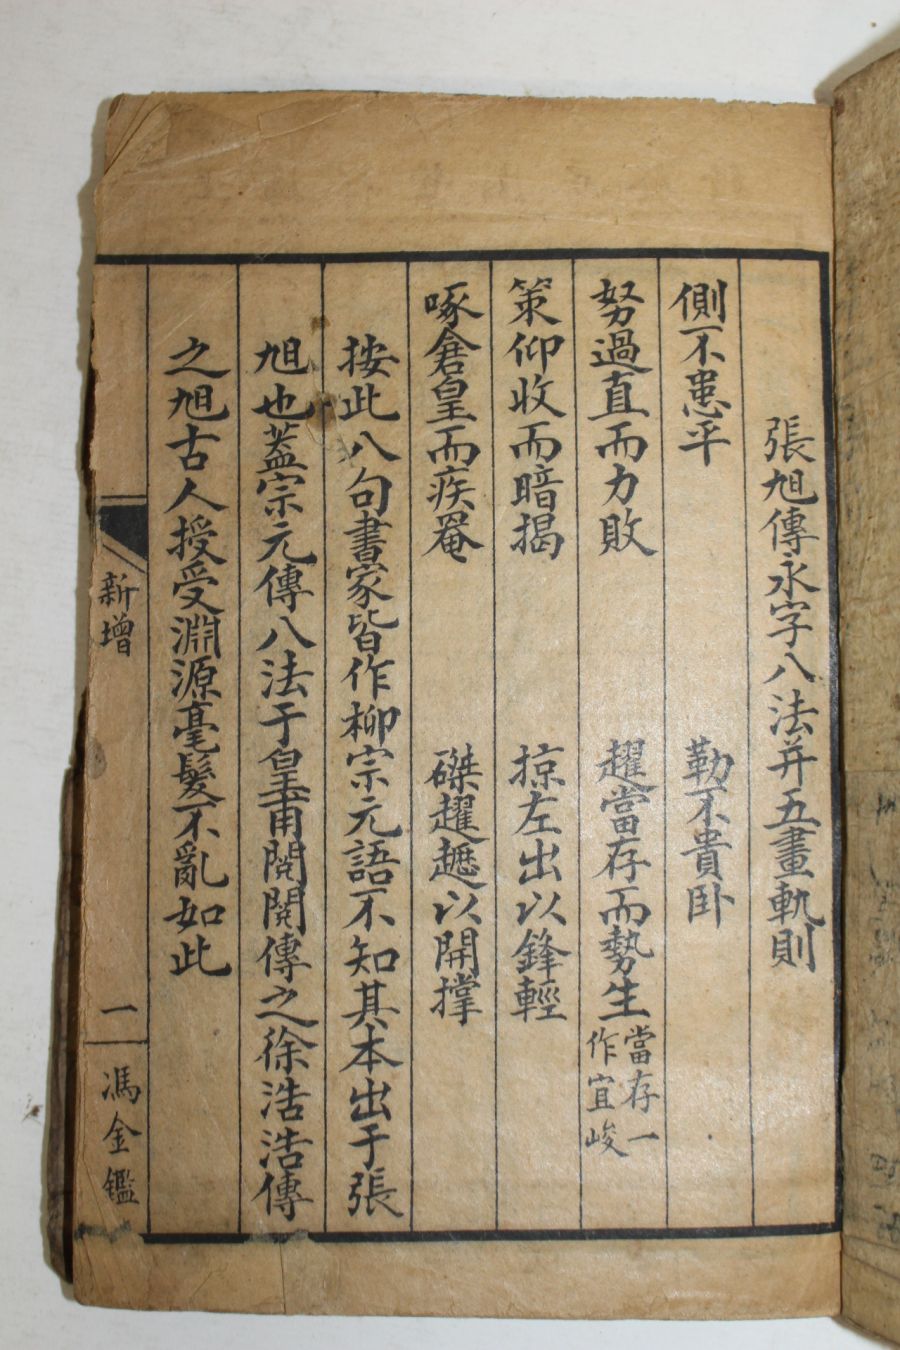 張旭傳永字八法并五畫軌則
側不患平　勒不貴卧
努過直而力敗　趯當存而勢生當存一作宜峻
策仰收而暗揭　掠左出以鋒輕
啄倉皇而疾罨　磔趯趩以開撑
按此八句書家皆作柳宗元語不知其本出于張
旭也蓋宗元傳八法于皇甫閱閱傳之徐浩浩傳
之旭古人授受淵源毫髮不亂如此
新增
一
馮金鑑